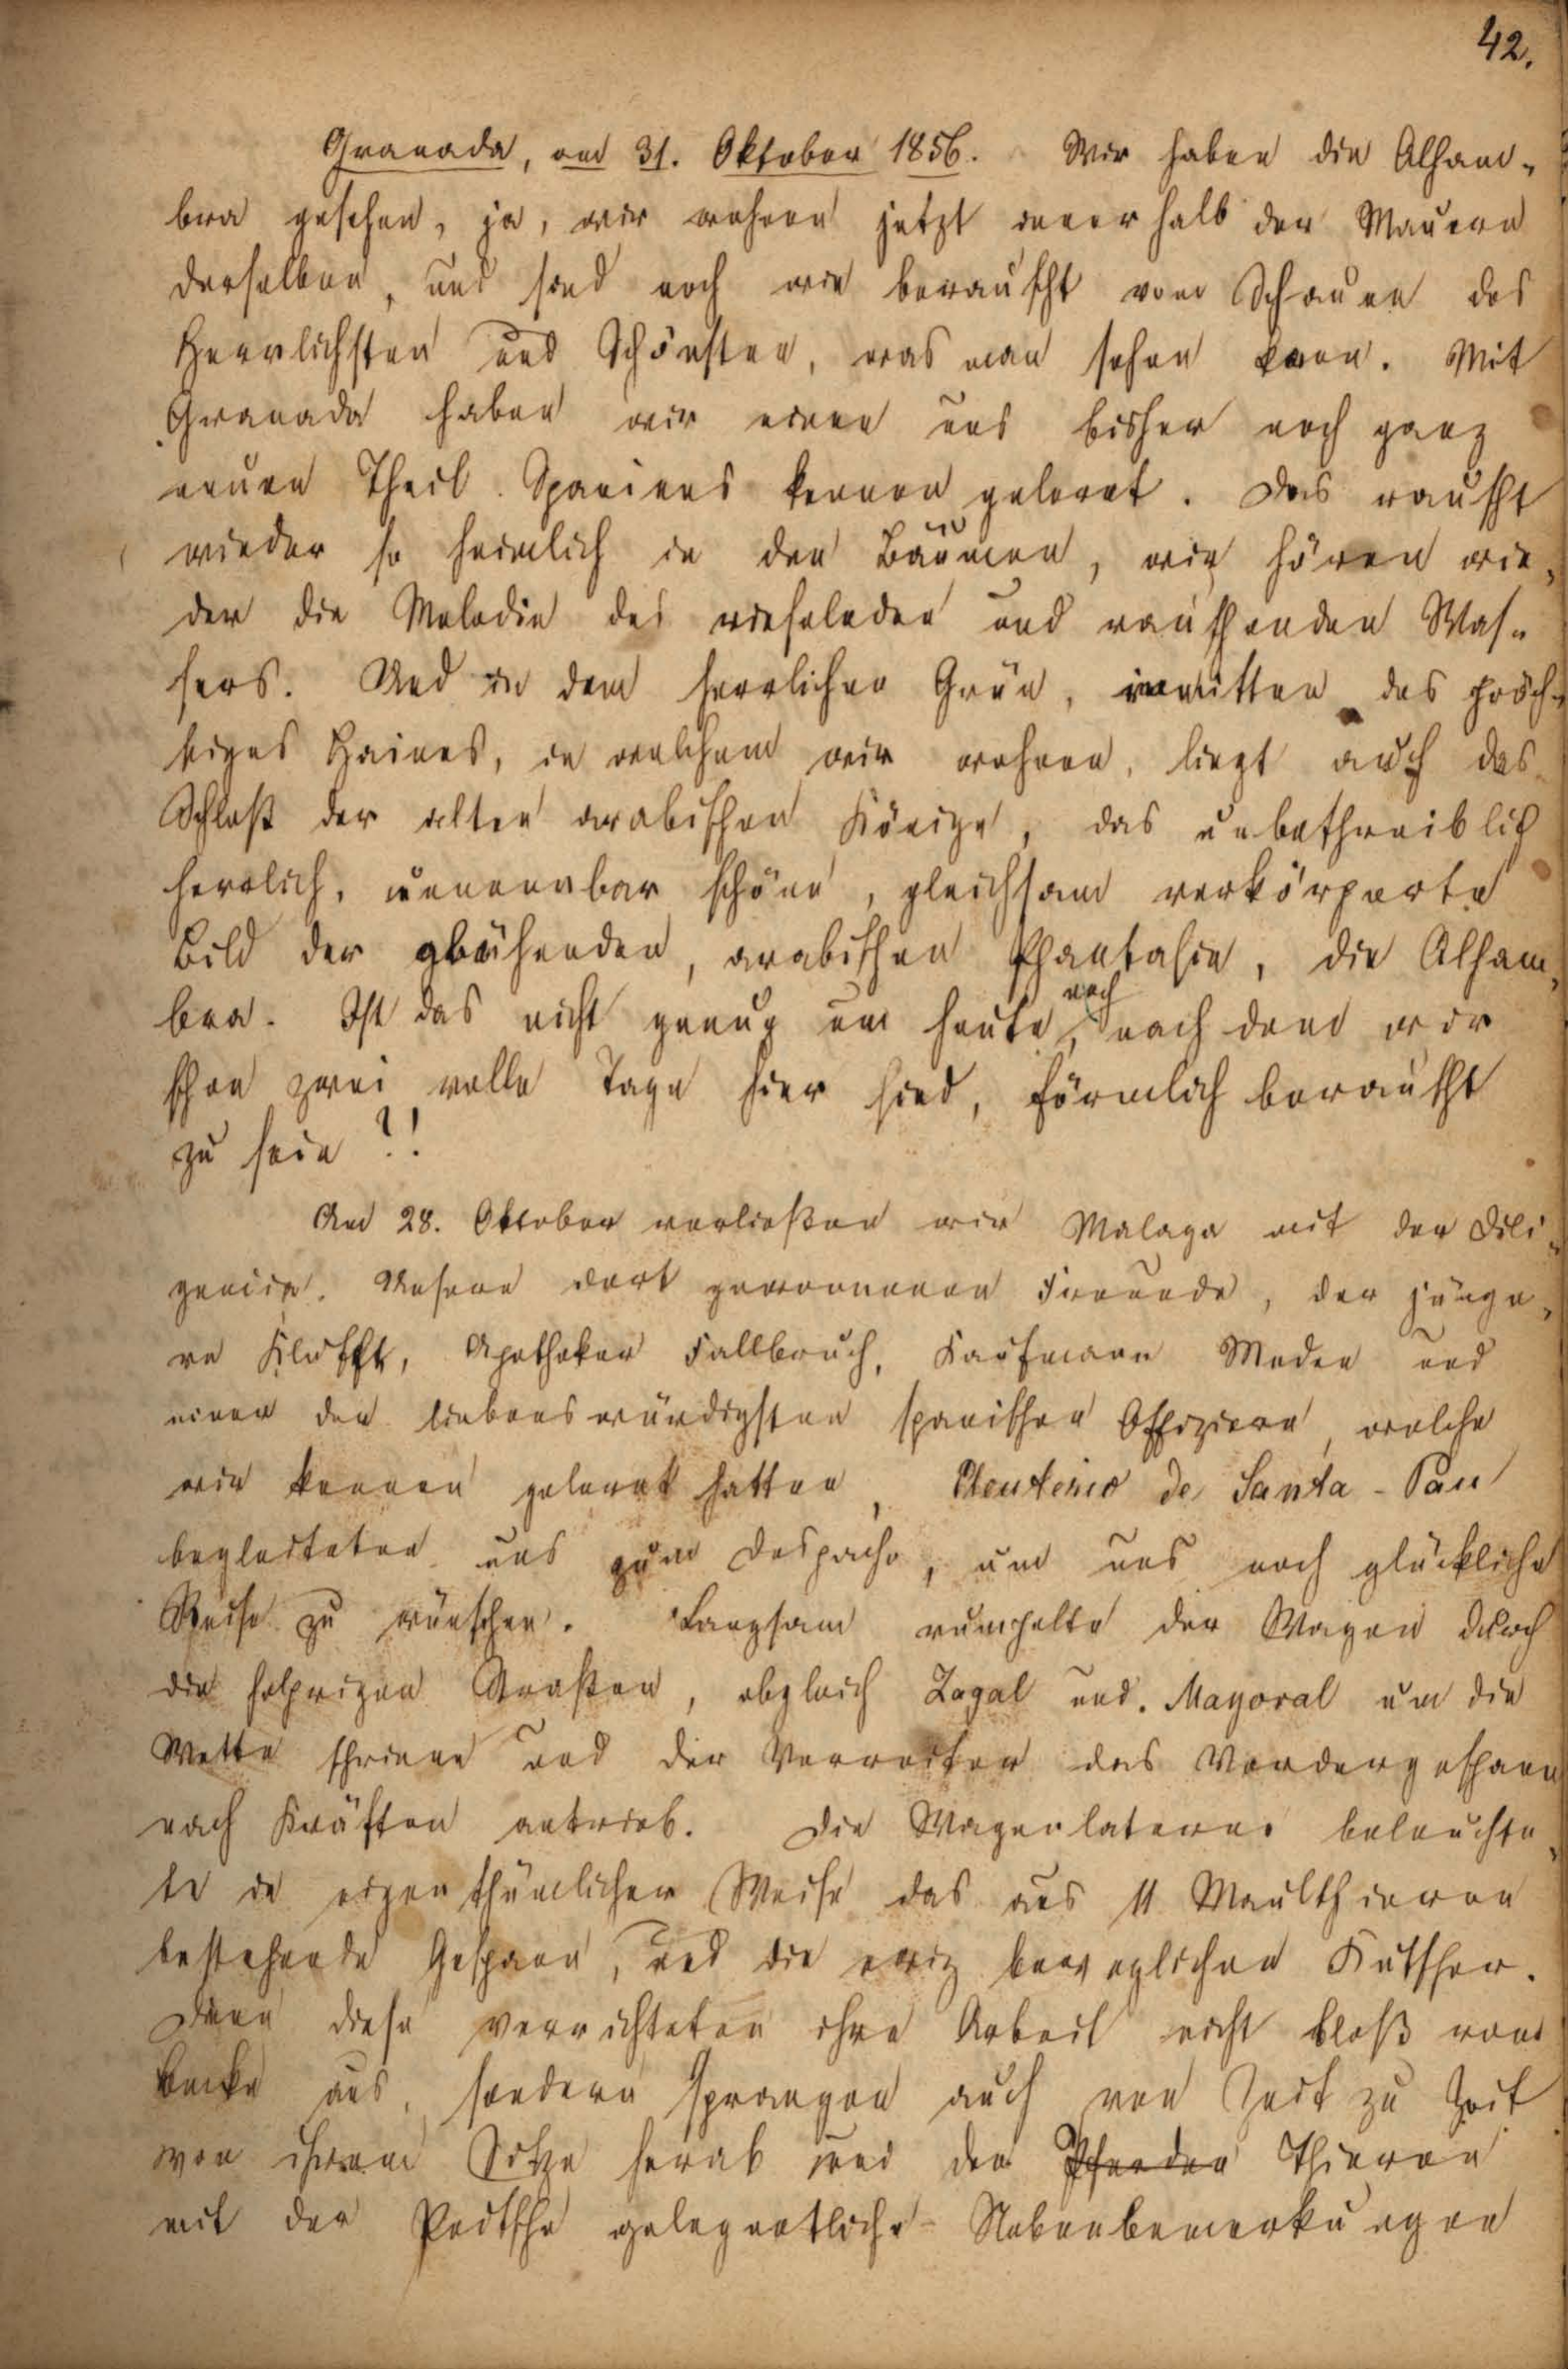 42.
Granada, am 31. Oktober 1856. Wir haben die Alham-
bra gesehen, ja, wir wohnen jetzt innerhalb der Mauern
derselben, und sind noch wie berauscht vom Schauen des
Herrlichsten und Schönsten, was man sehen kann. Mit
Granada haben wir einen uns bisher noch ganz
neuen Theil Spaniens kennen gelernt. Das rauscht
wieder so heimlich in den Bäumen, wir hören wie-
der die Melodie des rieselnden und rauschenden Was-
sers. Und in dem herrlichen Grün, inmitten des präch-
tigen Haines, in welchem wir wohnen, liegt auch das
Schloß der alten arabischen Könige, das unbeschreiblich
herrlich, unnennbar schöne, gleichsam verkörperte
Bild der glühenden, arabischen Phantasie, die Alham-
bra. Ist das nicht genug um heute noch, nach dem wir
schon zwei volle Tage hier sind, förmlich berauscht
zu sein?!
Am 28. Oktober verließen wir Malaga mit der Dili-
gencia. Unsere dort gewonnenen Freunde, der jünge-
re Apotheker Fallbruch, Kaufmann Meden und
einer der liebenswürdigsten spanischen Offiziere, welche
wir kennen gelernt hatten, de Santa-Pau
begleiteten uns zum Despacho, um uns noch glückliche
Reise zu wünschen. Langsam rumpelte der Wagen durch
die holprigen Straßen, obgleich Zagal und Mayoral um die
Wette schrieen und der Vorreiter das Vordergespann
nach Kräften antrieb. Die Wagenlaterne beleuchte-
te in eigenthümlicher Weise das aus 11 Maulthieren
bestehende Gespann, und die ewig beweglichen Kutscher.
Denn diese verrichteten ihre Arbeit nicht bloß vom
Bocke aus, sondern sprangen auch von Zeit zu Zeit
von ihrem Sitze herab um den Pferden Thieren
mit der Peitsche gelegentliche Nebenbemerkungen